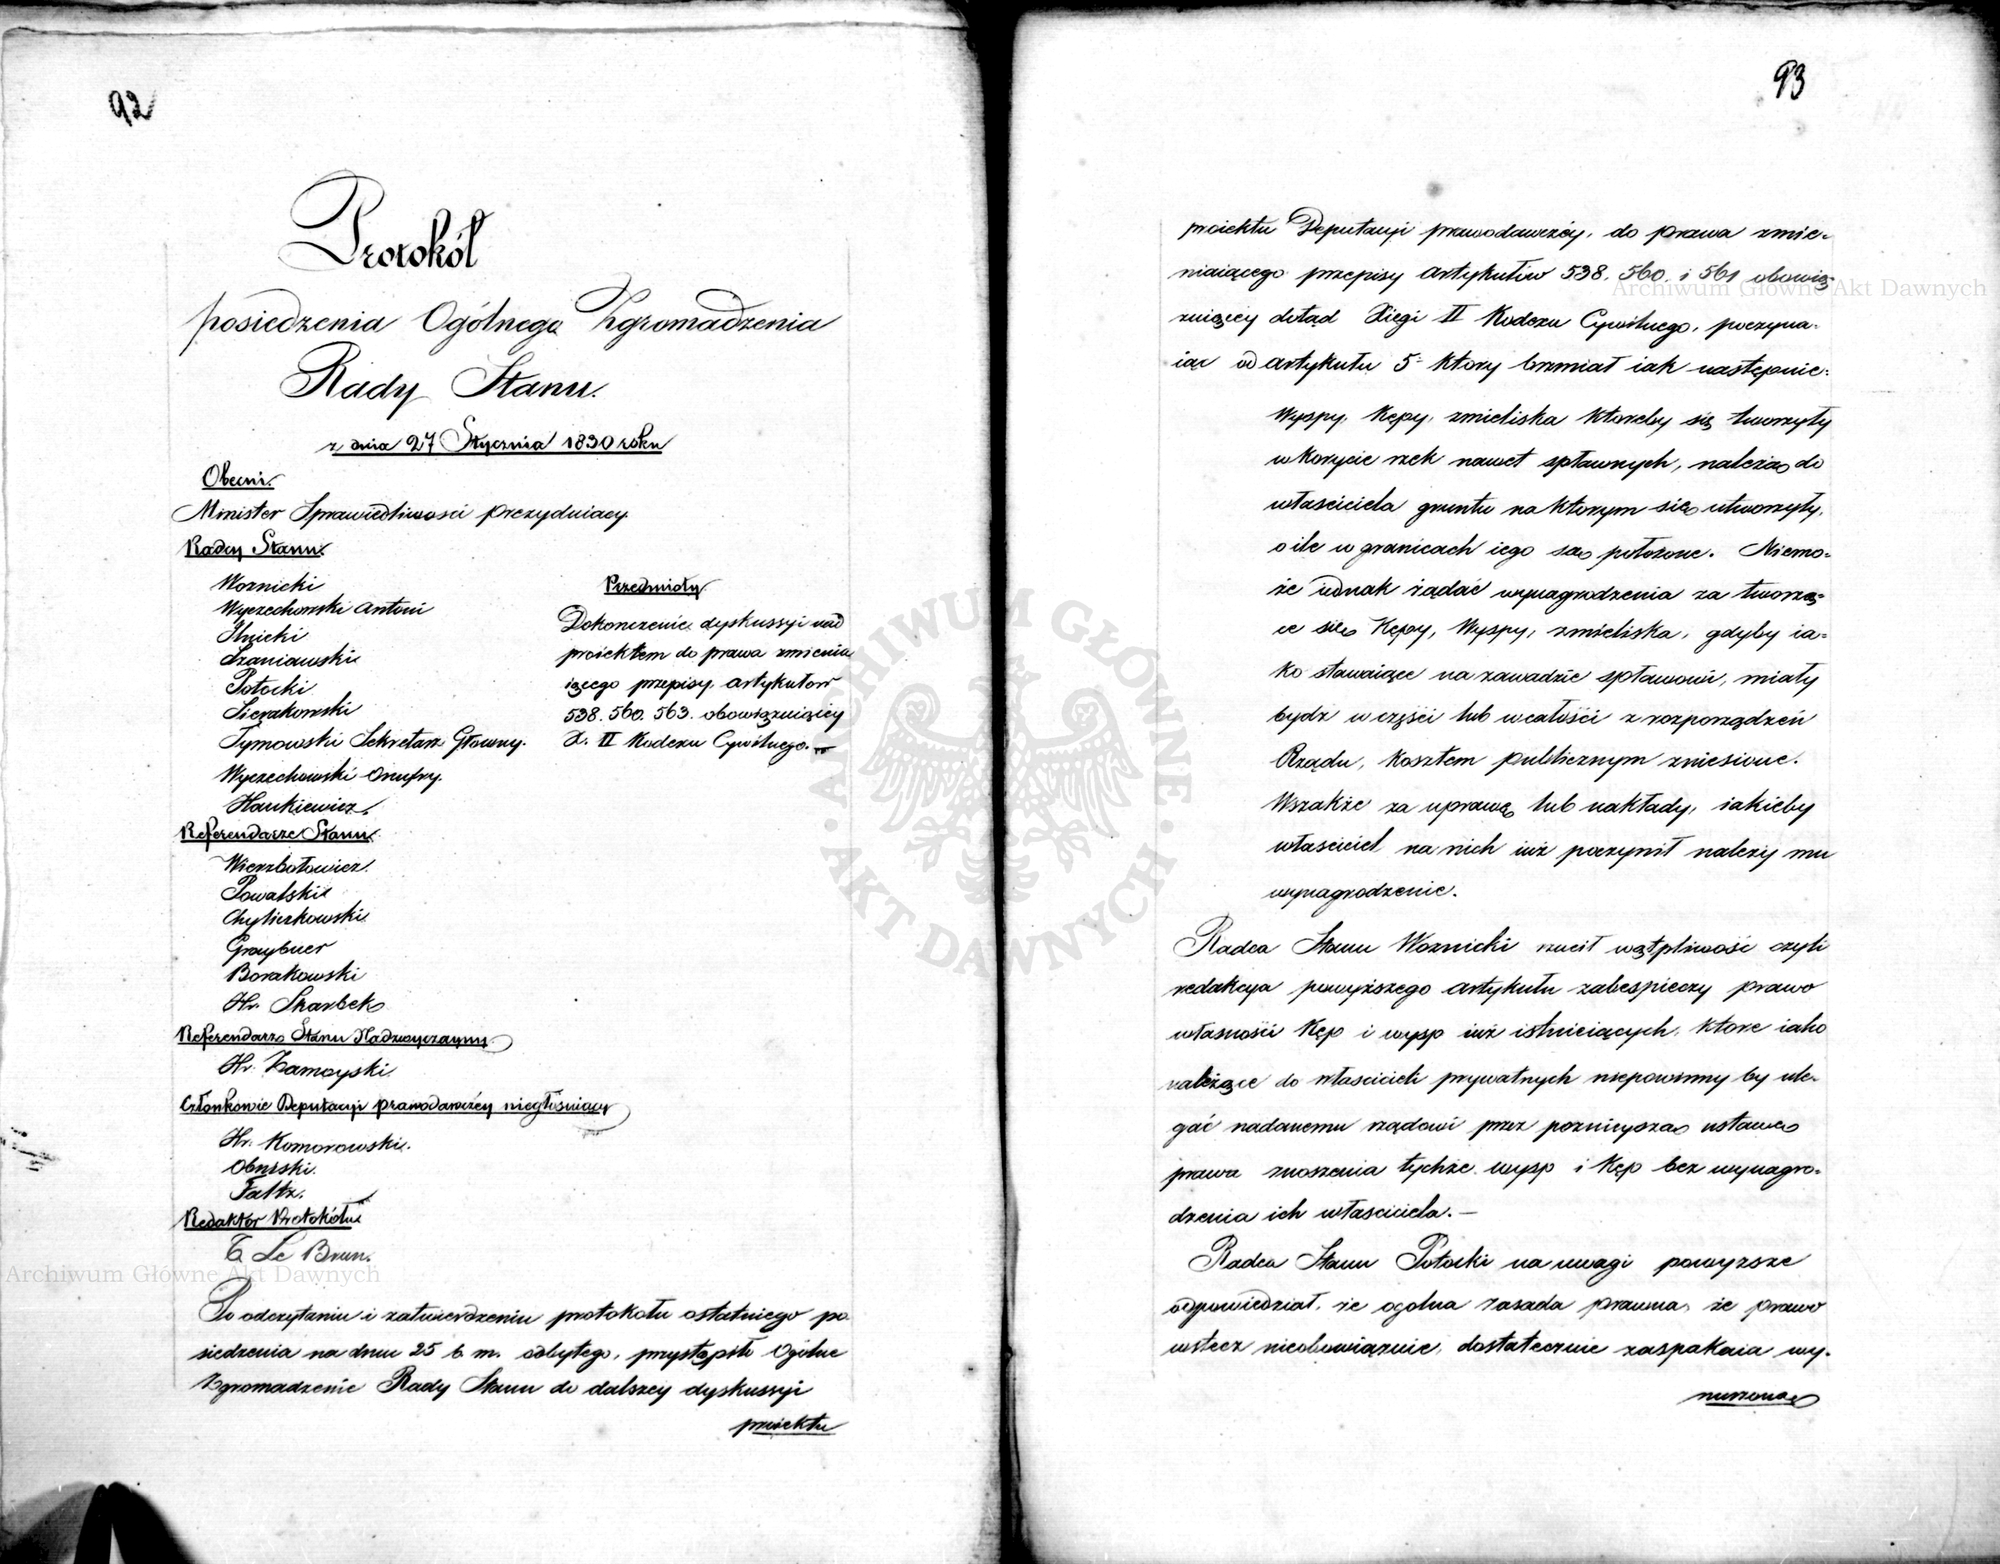 92
Protokół
posiedzenia Ogólnego Zgromadzenia
Rady Stanu.
z dnia 27 Stycznia 1830 roku
Obecni.
Minister Sprawiedliwosci prezyduiący
Radcy Stanu.
Woznicki
Wyczechowski Antoni
Szaniawski
Potocki
Sierakowski
Tymowski Sekretarz Głowny.
Wyczechowski Onufry.
Hankiewicz.
Referendarze Stanu.
Wierzbołowicz.
Powalski
Chyliczkowski
Graybner
Borakowski
Hr. Skarbek
Referendarz Stanu Nadzwyczayny.
Hr. Zamoyski
Członkowie Deputacyi prawodawczéy niegłosuiący
Hr. Komorowski.
Faltz.
Redaktor Protokółu
Le Brun.
Przedmioty
Dokonczenie dyskussyi nad
proiektem do prawa zmienia
iącego przepisy artykułow
538. 560. 563. obowiązuiącey
X. II Kodexu Cywilnego.
Po odczytaniu i zatwierdzeniu protokołu ostatniego po
siedzenia na dniu 25 b. m. odbytego, przystąpiło Ogólne
Zgromadzenie Rady Stanu do dalszey dyskussyi
proiektu
93
proiektu Deputacyi prawodawczéy, do prawa zmie-
niaiącego przepisy artykułów 538. 560. i 561 obowią-
zuiącéy dotąd Xięgi II Kodexu Cywilnego, poczyna-
iąc od artykułu 5 ktory brzmiał iak następnie:
Wyspy, Kępy, zmieliska ktoreby się tworzyły
w korycie rzek nawet spławnych, należą do
własciciela gruntu na ktorym się utworzyły,
o ile w granicach iego są położone. Niemo-
że iednak żądać wynagrodzenia za tworzą-
ce się Kępy, Wyspy, zmieliska, gdyby ia-
ko stawaiące na zawadzie spławowi, miały
bydź w części lub w całości z rozporządzeń
Rządu, kosztem publicznym zniesione.
Wszakże za uprawę lub nakłady, iakieby
własciciel na nich iuż poczynił należy mu
wynagrodzenie.
Radca Stanu Woznicki rzucił wątpliwość czyli
redakcya powyższego artykułu zabespieczy prawo
własności Kęp i wysp iuż istnieiących, ktore iako
należące do własciceli prywatnych niepowinny by ule-
gać nadanemu rządowi przez poznieyszą ustawę
prawa znoszenia tychże wysp i Kęp bez wynagro-
dzenia ich własciciela. —
Radca Stanu Potocki na uwagi powyzsze
odpowiedział, że ogolna zasada prawna, że prawo
wstecz nieobowiązuie, dostatecznie zaspakaia wy-
nurzoną
Archiwum Główne Akt Dawnych
Archiwum Główne Akt Dawnych
ARCHIWUM GŁÓWNE · AKT DAWNYCH ·